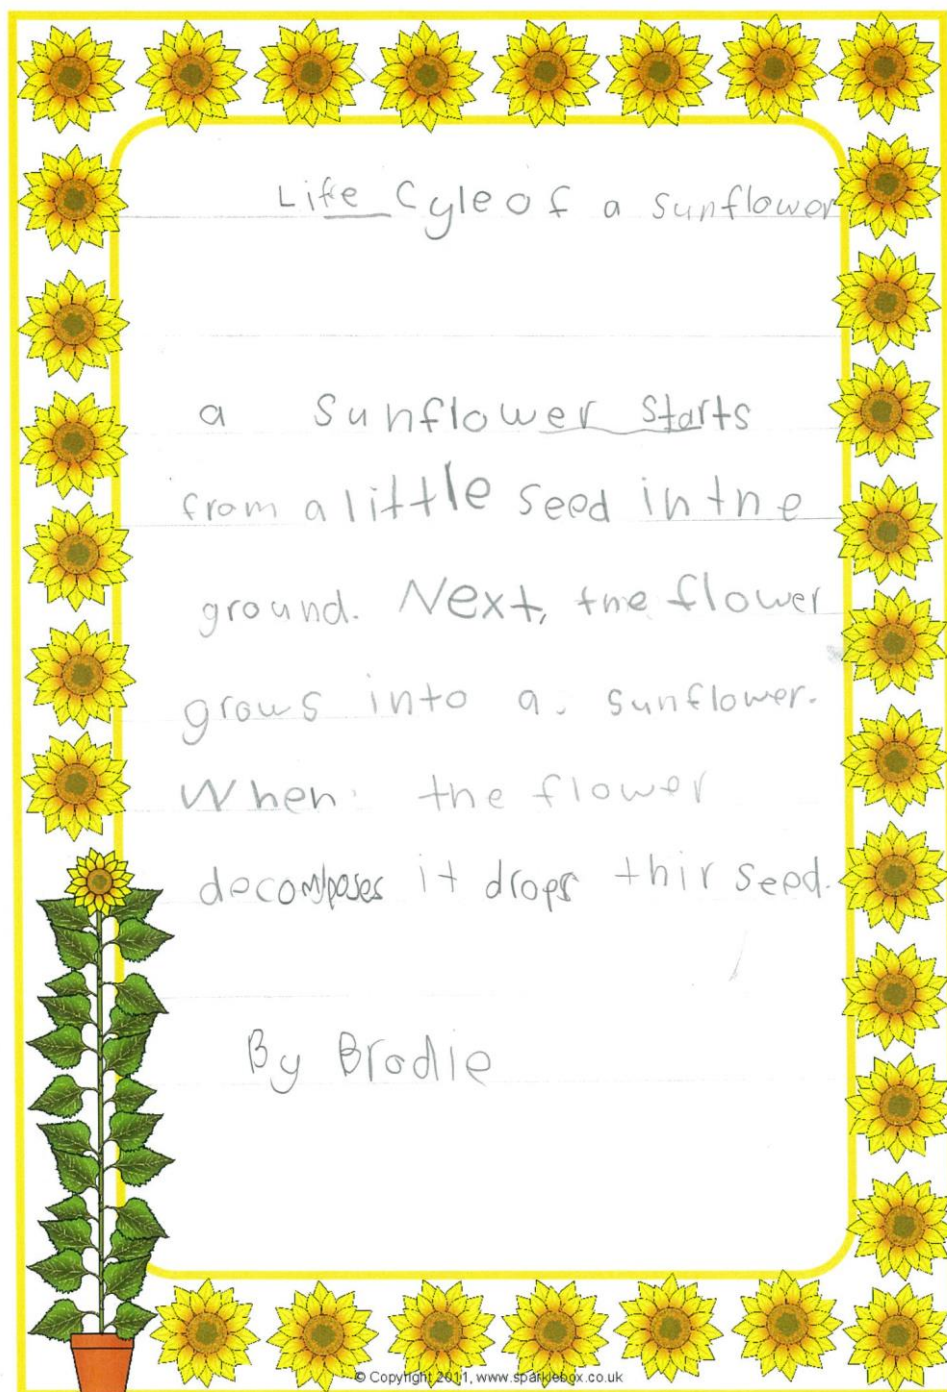 Life Cyle of a sunflower
a Sunflower starts
from a little seed in the
ground. Next, the flower
grows into a sunflower.
When the flower
decomposes it drops thir seed.
By Brodie
© Copyright 2011, www.sparklebox.co.uk